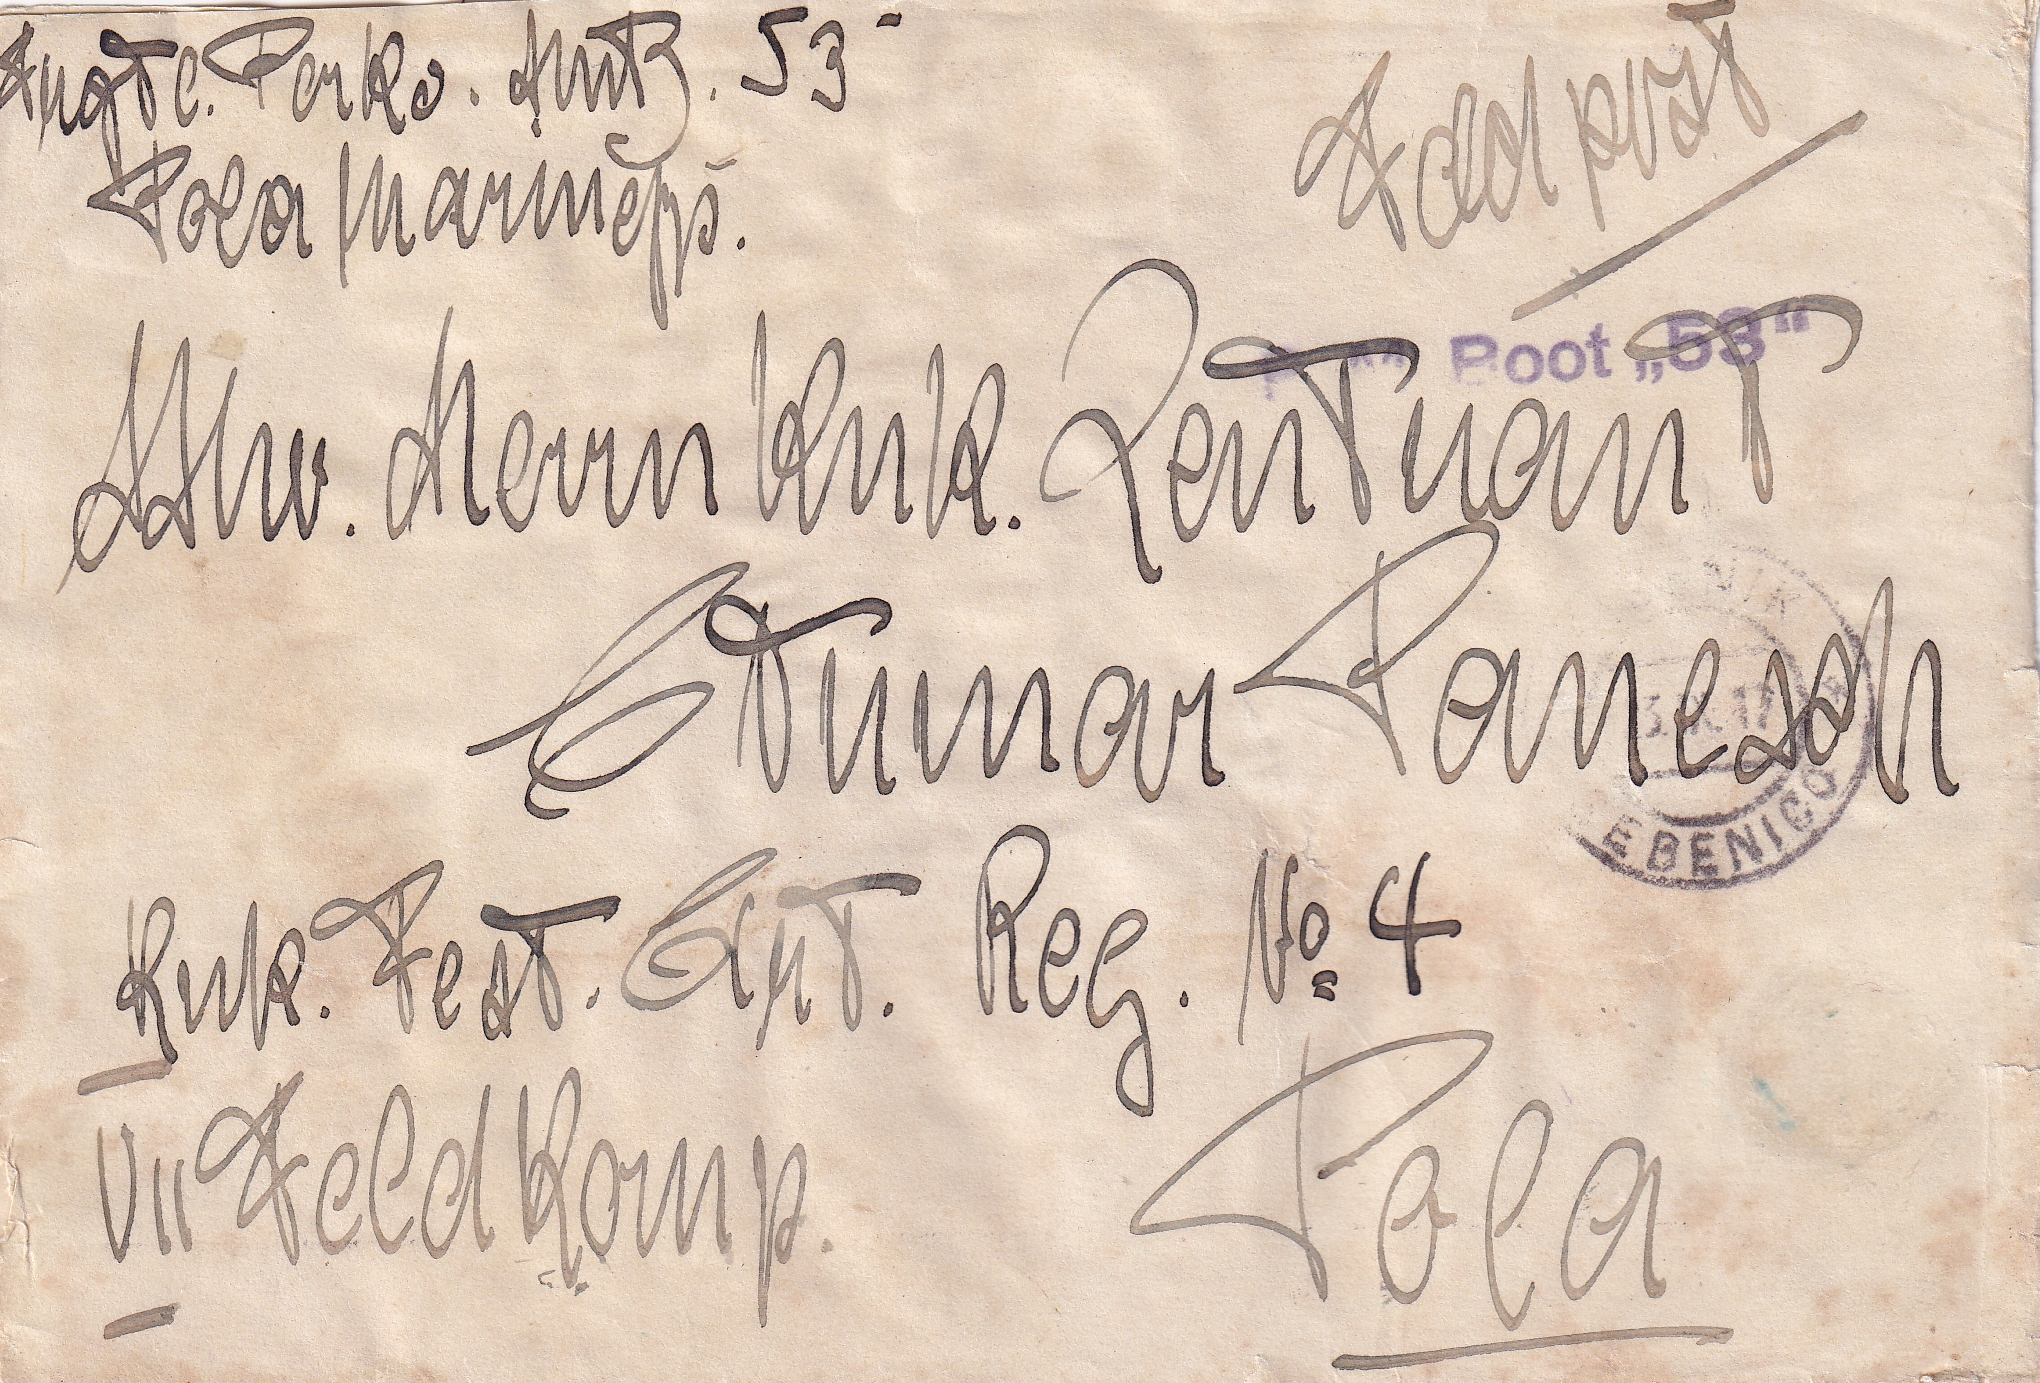 Perko. 53
Pola Marinefps.
Feldpost
Boot „53"
Herrn KuK. Leutnant
Otmar Panesch
EBENICO
KuK. Fest. Art. Reg. No 4
VII FeldKomp.
Pola